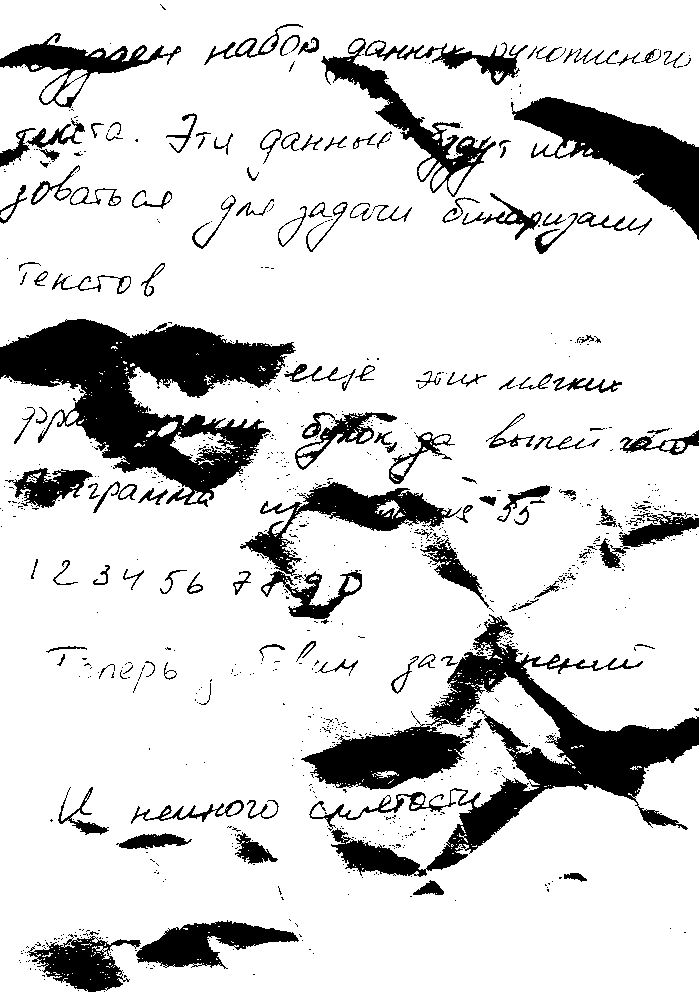 Создаем набор данных рукописного
текста. Эти данные будут исп
зоваться для задачи бинаризации
текстов
ещё этих мягких
булок, да выпей чаю
Программа 35
1 2 3 4 5 6 7 8 9 0
Теперь добавим загрязнений
И немного смятости